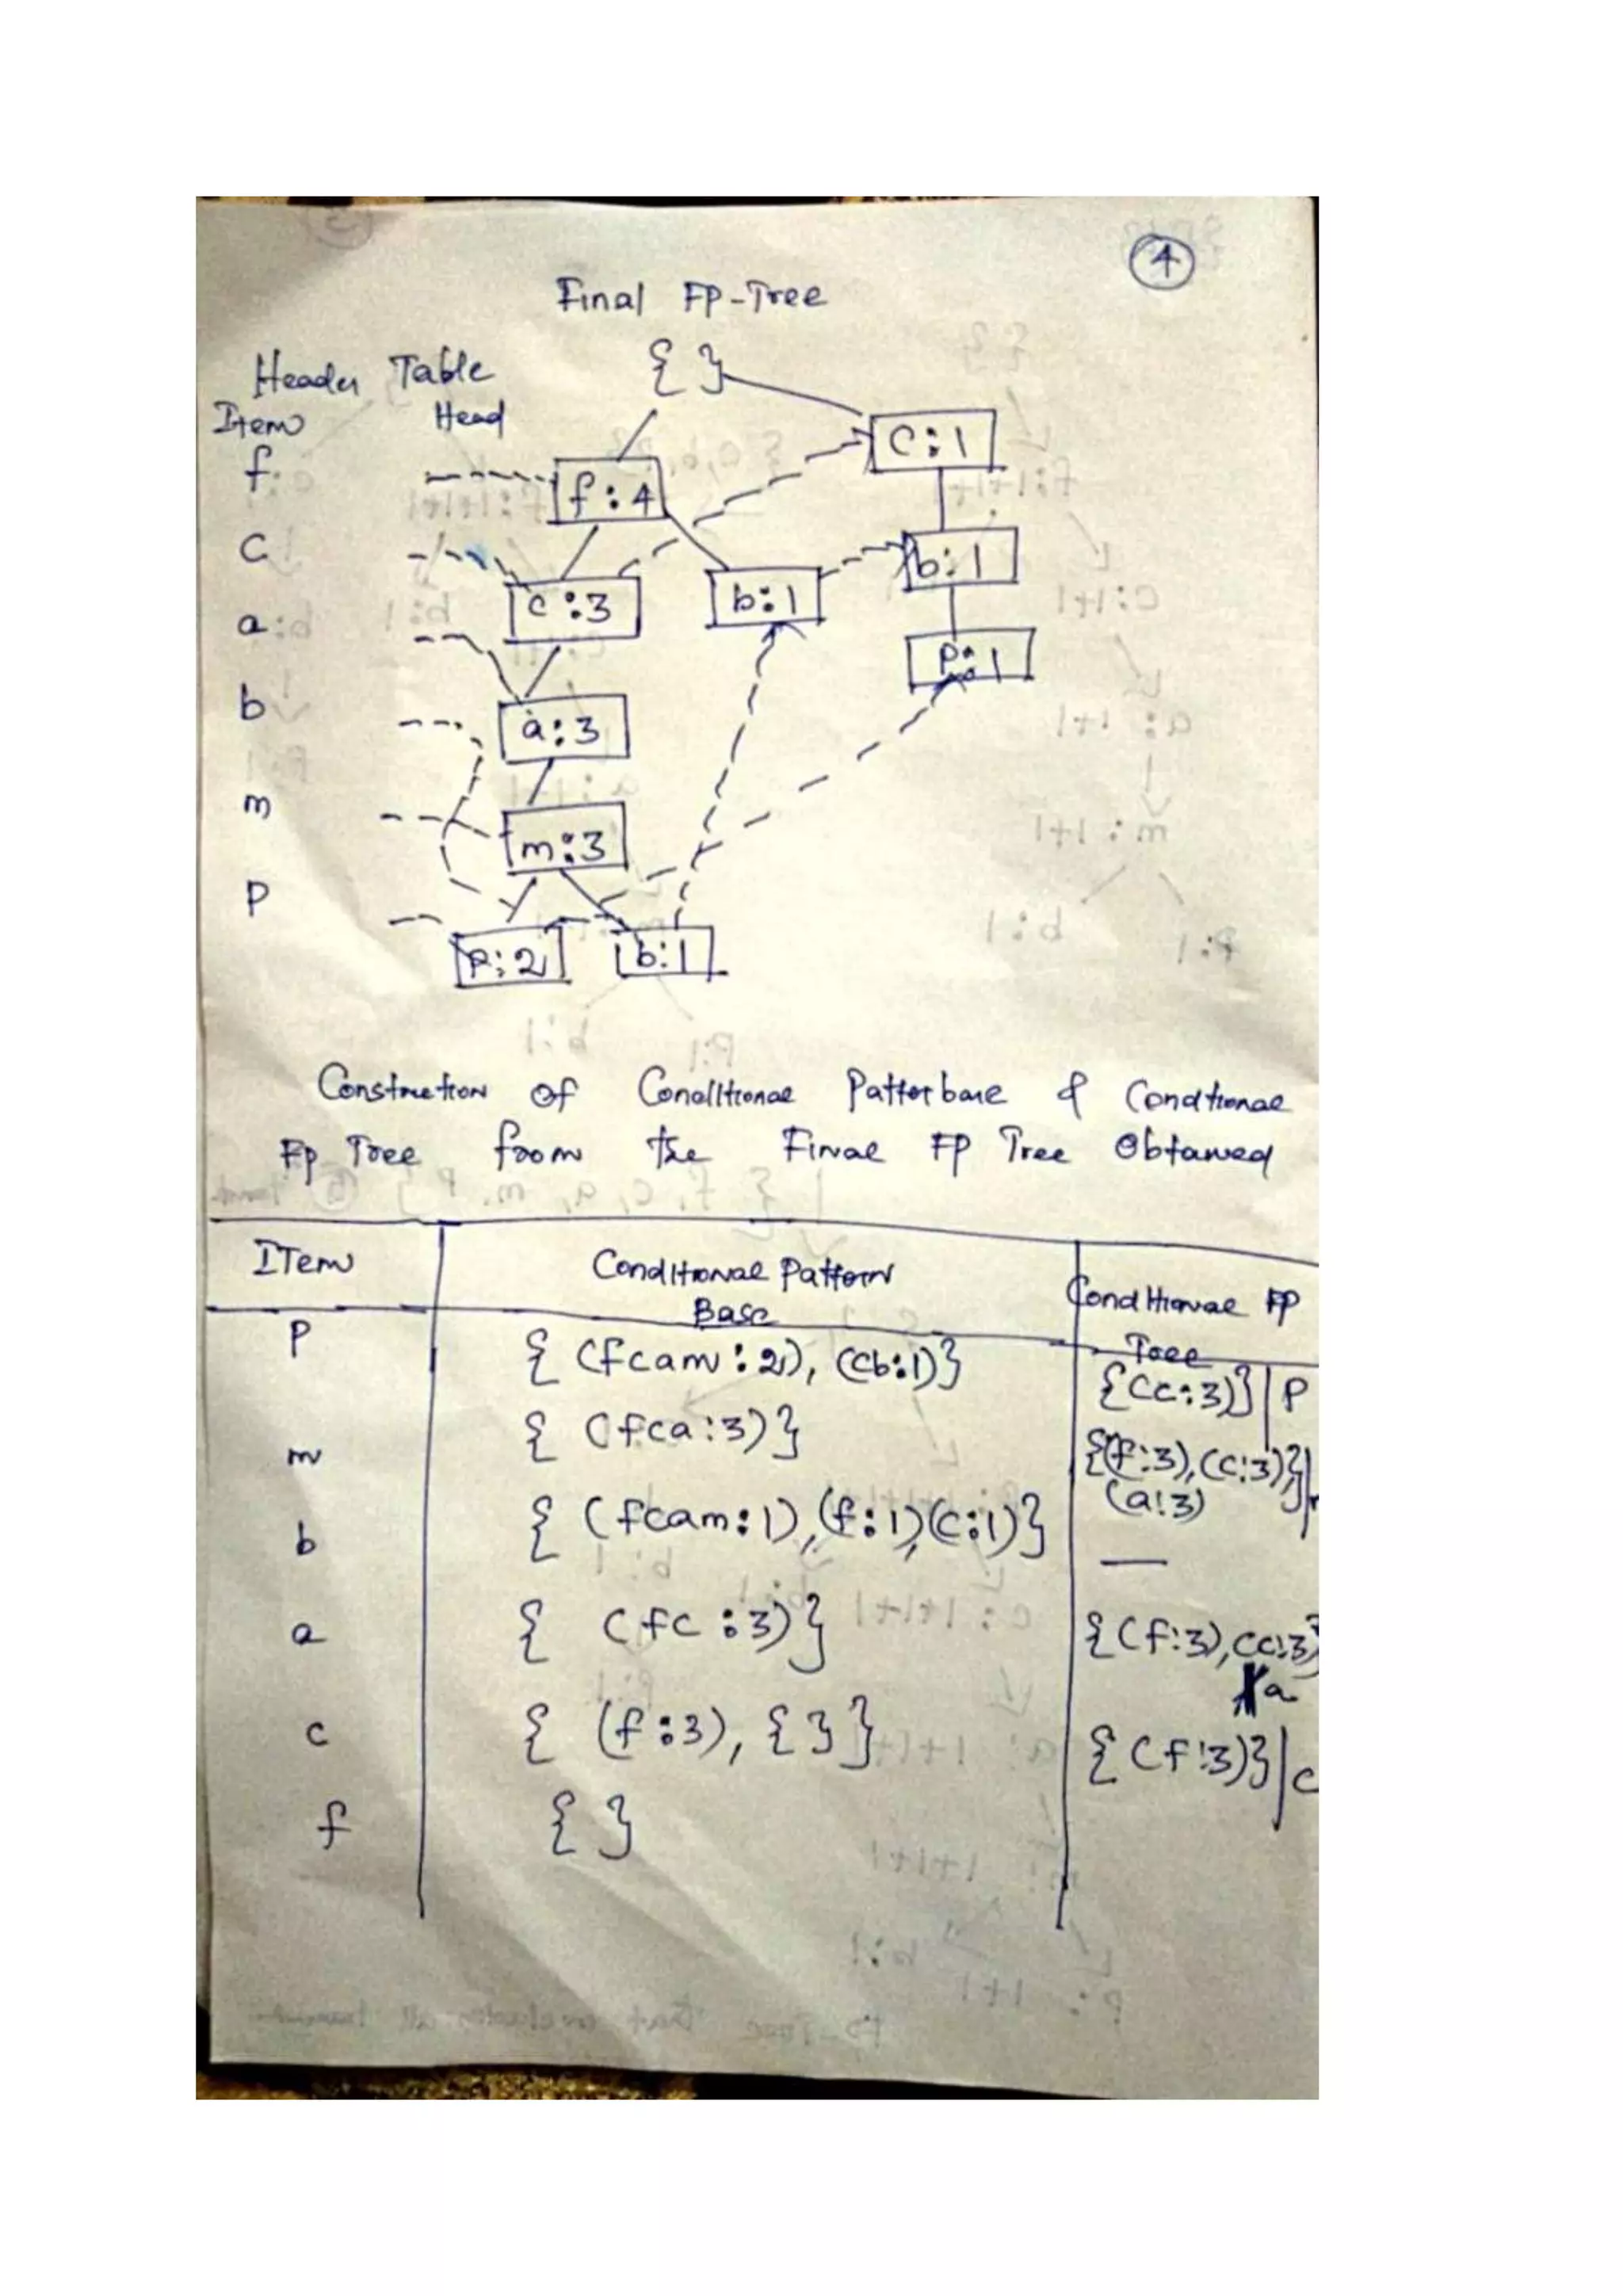 4
Final FP-Tree
{ }
Header Table
Item Head
f
c
a
b
m
p
f:4
C:1
c:3
b:1
b:1
a:3
P:1
m:3
P:2
b:1
Construction of Conditional Patter base & Condtional
Fp Tree from the Final FP Tree Obtained
ITem
Conditional Pattern
Base
Conditional FP
Tree
P
{ (fcam:2), (cb:1)}
{(c:3)}|P
m
{ (fca:3)}
{(f:3),(c:3)}|
(a:3)
b
{ (fcam:1),(f:1),(c:1)}
—
a
{ (fc:3)}
{(f:3),(c:3)
|a
c
{ (f:3), { } }
{(f:3)}|c
f
{ }